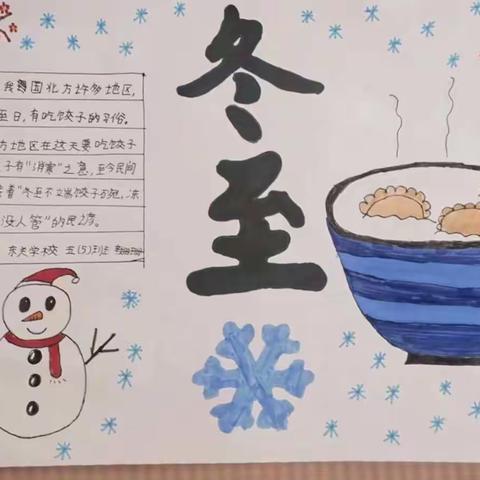 冬至
我舞国北方许多地区,
至日,有吃饺子的习俗。
方地区在这天要吃饺子
子有"消寒"之意,至今民间
着"冬至不端饺子碗,冻
没人管"的民谚。
东关学校 五(5)班